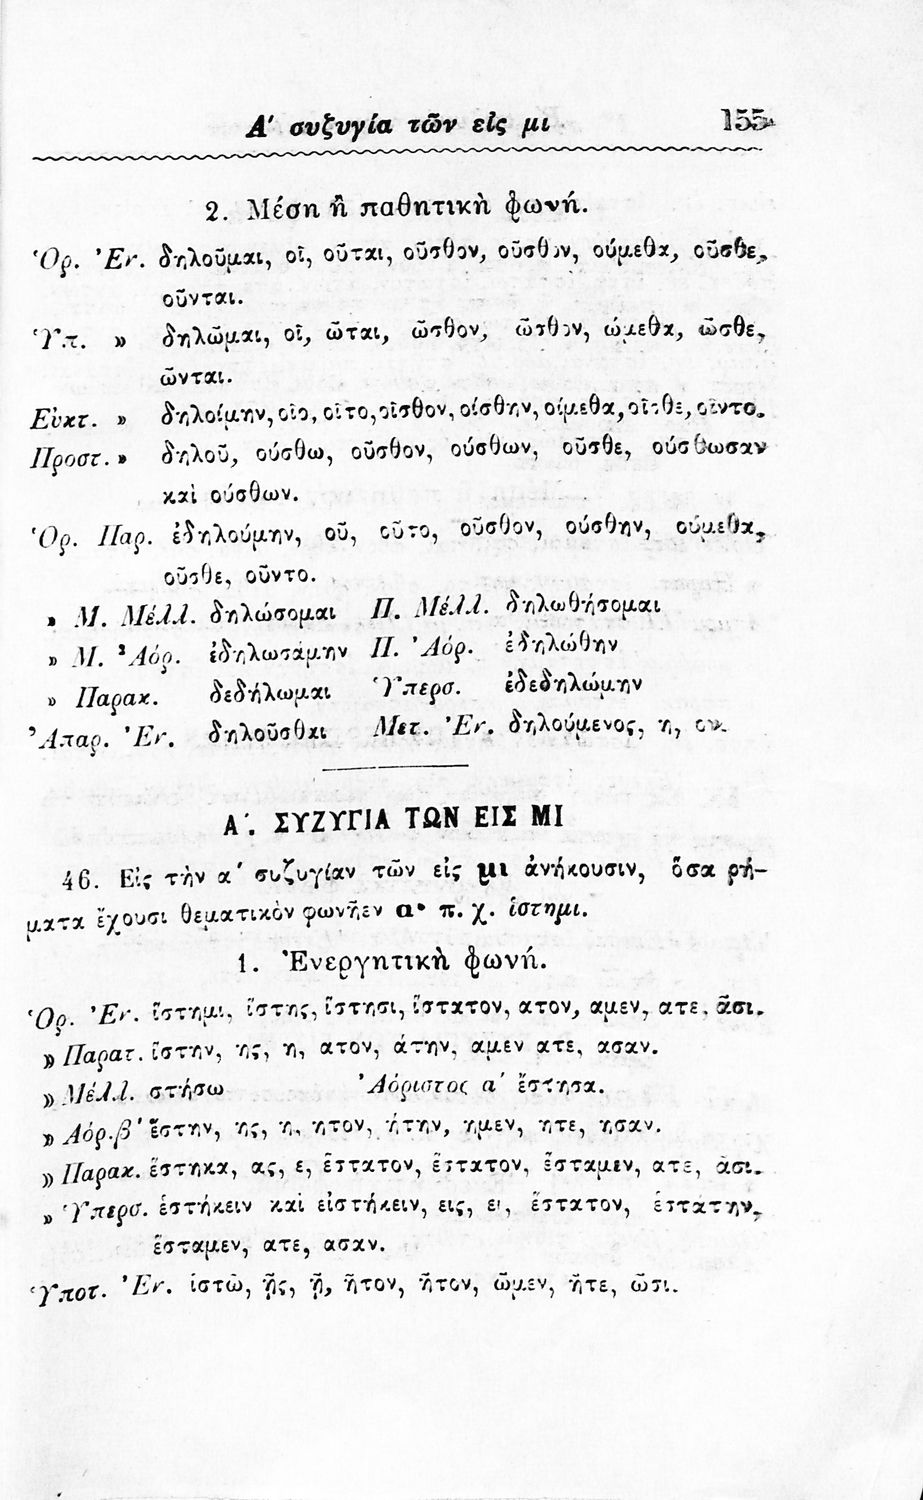 Α' συζυγία τῶν εἰς μι 155
2. Μέση ἢ παθητικὴ φωνή.
Ὁρ. Ἐν. δηλοῦμαι, οῖ, οῦται, οῦσθον, οῦσθον, ούμεθα, οῦσθε,
οῦνται.
Ὑπ. » δηλῶμαι, οῖ, ῶται, ῶσθον, ῶσθον, ώμεθα, ῶσθε,
ῶνται.
Εὐκτ. » δηλοίμην, οῖο, οῖτο, οῖσθον, οίσθην, οίμεθα, οῖσθε, οῖντο.
Προστ. » δηλοῦ, ούσθω, οῦσθον, ούσθων, οῦσθε, ούσθωσαν
καὶ ούσθων.
Ὁρ. Παρ. ἐδηλούμην, οῦ, οῦτο, οῦσθον, ούσθην, ούμεθα,
οῦσθε, οῦντο.
» Μ. Μέλλ. δηλώσομαι Π. Μέλλ. δηλωθήσομαι
» Μ. Ἀόρ. ἐδηλωσάμην Π. Ἀόρ. ἐδηλώθην
» Παρακ. δεδήλωμαι Ὑπερσ. ἐδεδηλώμην
Ἀπαρ. Ἐν. δηλοῦσθαι Μετ. Ἐν. δηλούμενος, η, ον.
Α΄. ΣΥΖΥΓΙΑ ΤΩΝ ΕΙΣ ΜΙ
46. Εἰς τὴν α΄ συζυγίαν τῶν εἰς μι ἀνήκουσιν, ὅσα ῥή-
ματα ἔχουσι θεματικὸν φωνῆεν α· π. χ. ἵστημι.
1. Ἐνεργητικὴ φωνή.
Ὁρ. Ἐν. ἵστημι, ἵστης, ἵστησι, ἵστατον, ατον, αμεν, ατε, ᾶσι.
» Παρατ. ἵστην, ης, η, ατον, άτην, αμεν ατε, ασαν.
» Μέλλ. στήσω Ἀόριστος α΄ ἔστησα.
» Ἀόρ. β΄ ἔστην, ης, η, ητον, ήτην, ημεν, ητε, ησαν.
» Παρακ. ἕστηκα, ας, ε, ἕστατον, ἕστατον, ἕσταμεν, ατε, ᾶσι.
» Ὑπερσ. ἑστήκειν καὶ εἱστήκειν, εις, ει, ἕστατον, ἑστάτην,
ἕσταμεν, ατε, ασαν.
Ὑποτ. Ἐν. ἱστῶ, ῇς, ῇ, ῆτον, ῆτον, ῶμεν, ῆτε, ῶσι.